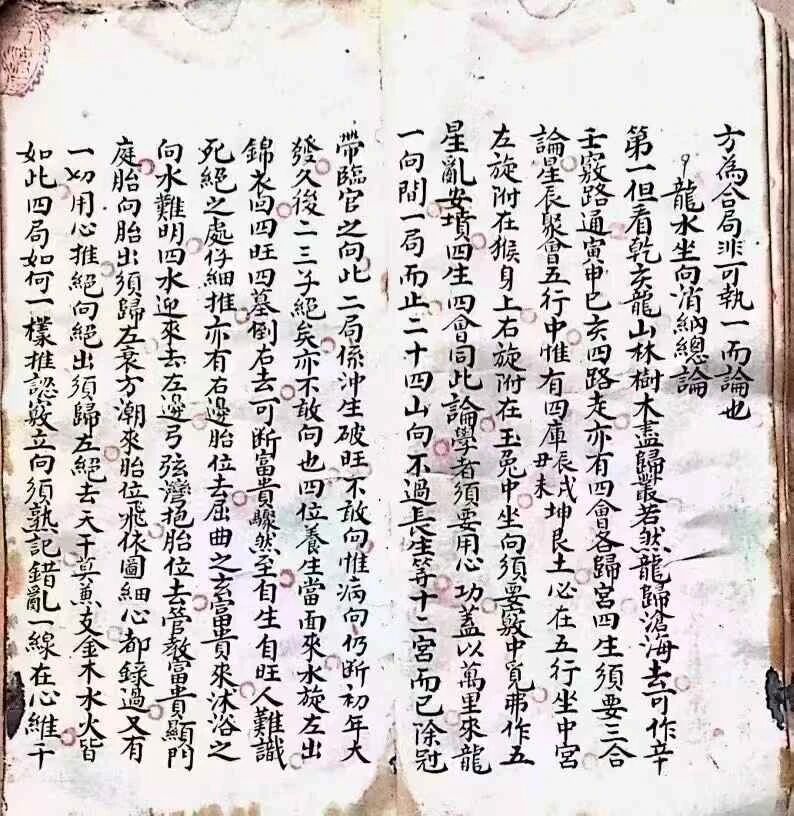 方為合局非可執一而論也
龍水坐向消納總論
第一但看乾亥龍山林樹木盡歸叢若然龍歸滄海去可作辛
壬竅路通寅申巳亥四路走亦有四會各歸宮四生須要三合
論星辰聚會五行中惟有四庫辰戌丑未坤艮土必在五行坐中宮
左旋附在猴身上右旋附在玉兔中坐向須要竅中覓弗作五
星亂安墳四生四會同此論學者須要用心功蓋以萬里來龍
一向間一局而止二十四山向不過長生等十二宮而已除冠
帶臨官之向此二局係沖生破旺不敢向惟病向仍断初年大
發久後二三子絕矣亦不敢向也四位養生當面來水旋左出
錦衣囬四旺四墓倒右去可断富貴驟然至自生自旺人難識
死絕之處仔細推亦有右邊胎位去屈曲之玄富貴來沐浴之
向水難明四水迎來去左邊弓弦灣抱胎位去管教富貴顯門
庭胎向胎出須歸左衰方潮來胎位飛依圖細心都錄過又有
一切用心推絕向絕出須歸左絕去天干莫兼支金木水火皆
如此四局如何一樣推認竅立向須熟記錯亂一線在心維千